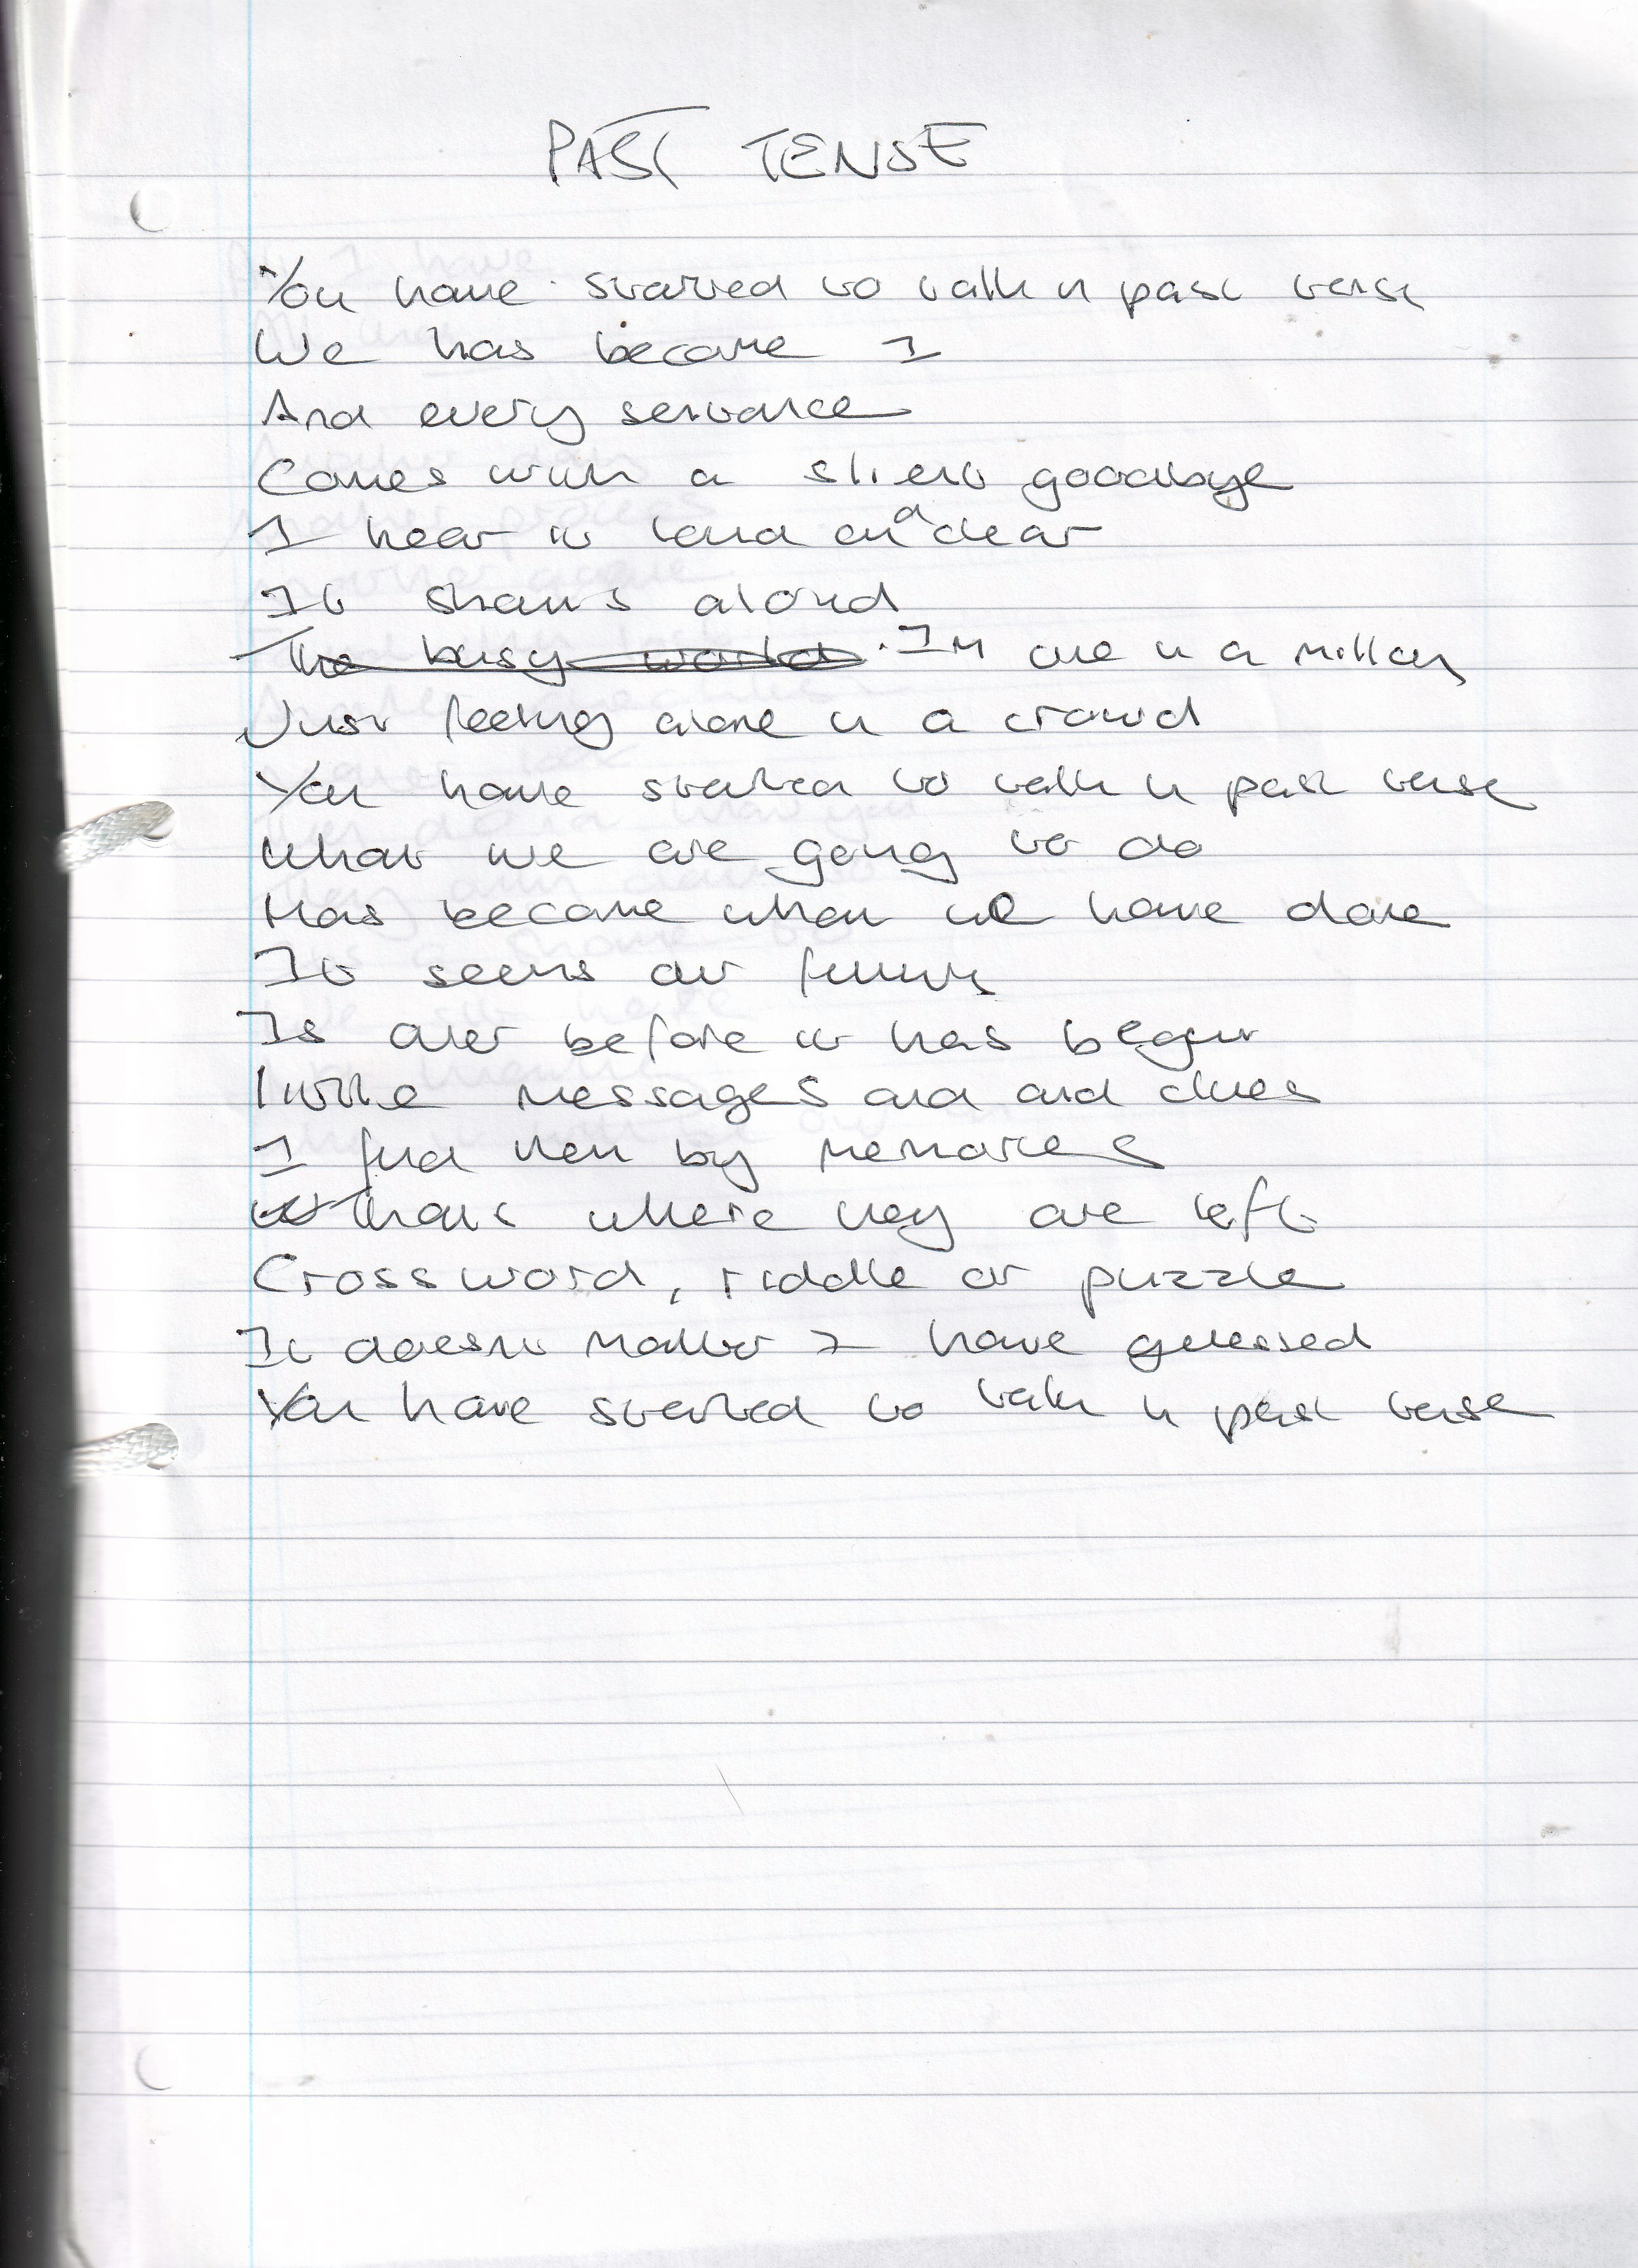 PAST TENSE
You have started to talk in past tense
We has become I
And every sentance
Comes with a silent goodbye
I hear it loud and clear
It shouts aloud
The busy world Im one in a million
Just feeling alone in a crowd
You have started to talk in past tense
What we are going to do
Has become what we have done
It seems our future
Is over before it has begun
Little messages and and clues
I find them by memories
Thats where they are left
Crossword, riddle or puzzle
It doesnt matter I have guessed
You have started to talk in past tense